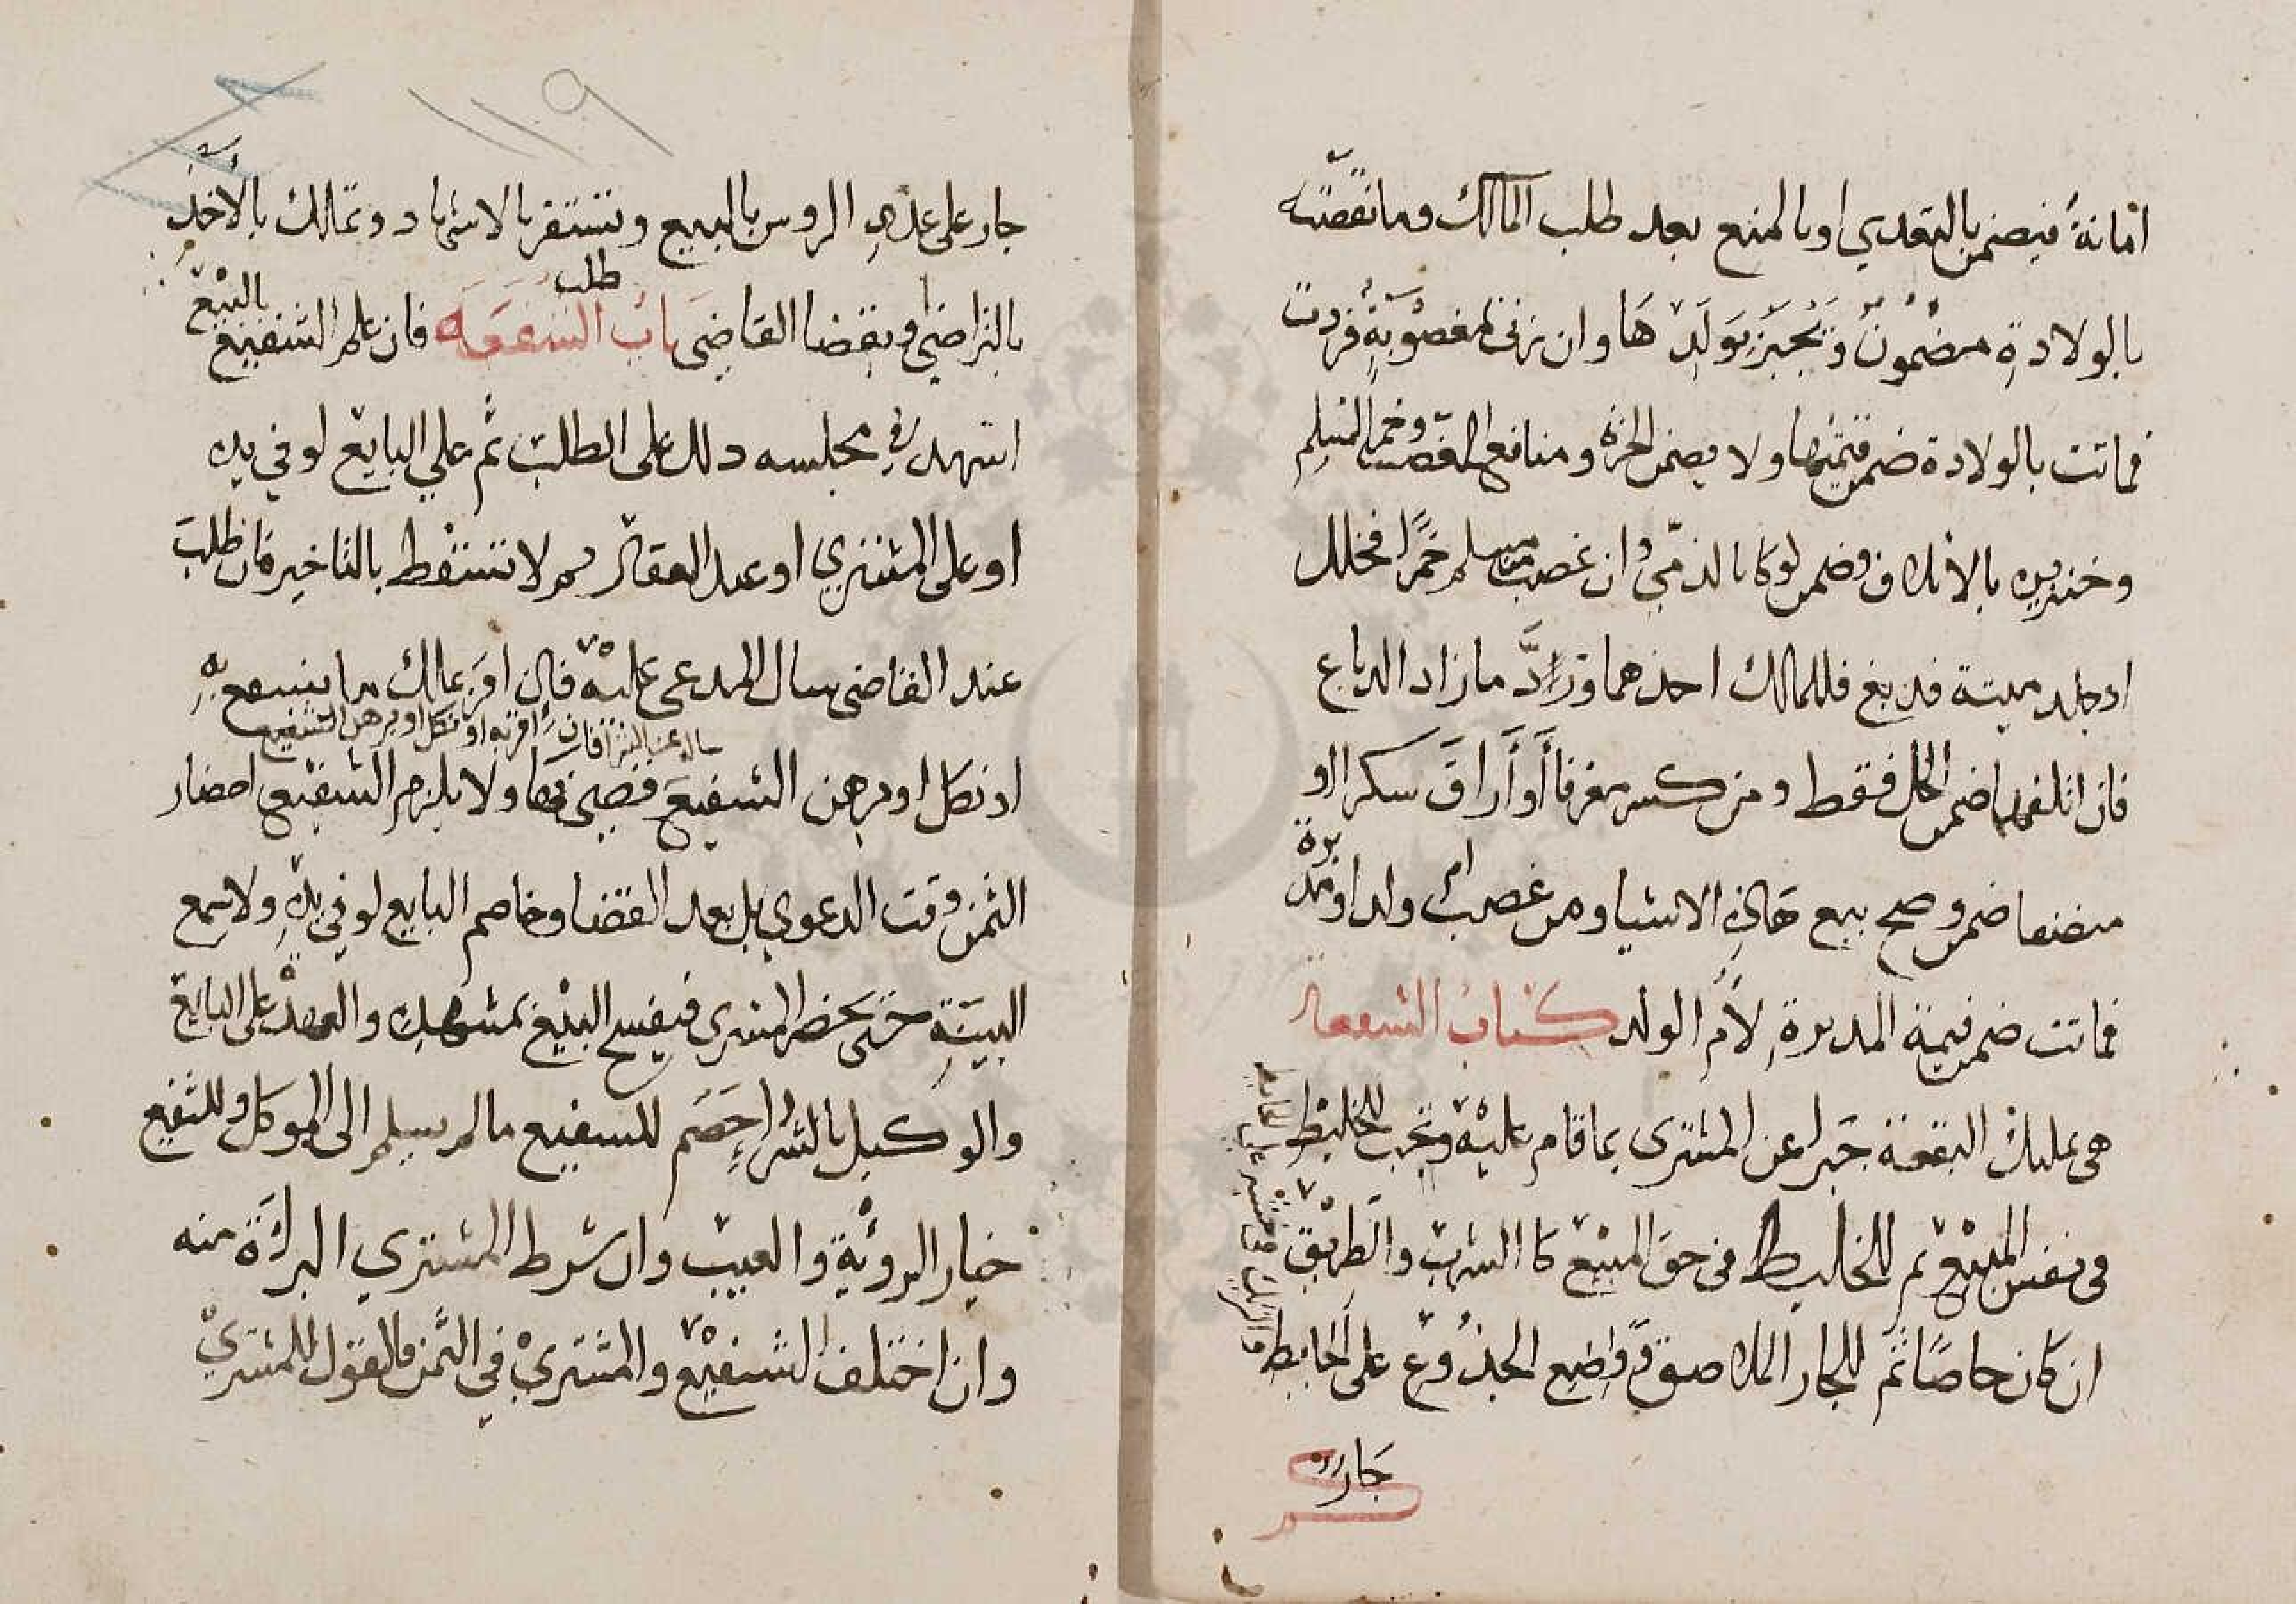 امانةٌ فيضمن بالتعدي او بالمنع بعد طلب المالك وما نقصته
بالولادةِ مضمُونٌ وَيُجْبَرُ بِوَلَدِهَا وان زنى بمغصُوبَةٍ فردت
فماتت بالولادة ضمن قيمتها ولا يضمن الحرة ومنافع الغصب وخمر المسلم
وخنزيره بالاتلاف وضمن لو كانا لذمّي وان غصب من مسلم خَمْرًا فخلل
او جلد ميتة فدبغ فللمالك اخذهما وَرَدَّ ما زاد الدباغ
فان اتلفهما ضمن الخل فقط ومن كسر معزفا أَوْ أَرَاقَ سكرا او
منصفا ضمن وصح بيع هَذِهِ الاشيا ومن غصب ام ولد او مدبرة
فماتت ضمن قيمة المدبرةِ لا أم الولد كتاب الشفعة
هى تمليك البقعة جَبرا عن المشترى بما قام عليْه وتجب للخليط
فى نفس المبيْع ثم للخليط فى حق المبيْع كالشرب والطريْق
ان كان خاصًا ثم للجار الملاصق وَوَاضِع الجذُوع على الحايط
جَار
١١٩
جار على عددِ الروس بالبيع وتستقر بالاشهاد وتملك بالأخذ
بالتراضي او بقضا القاضى بَابُ طلب الشفعَة فان علم الشفيع بالبيْع
اشهد في مجلسه ذلك على الطلب ثُم علي البايع لو في يده
او على المشتري او عند العقار ثم لا تسقط بالتاخير فان طلبَ
عند القاضى سال المدعى عليْه فان اقر بملك ما يشفع بِهِ
او نكل او برهن الشفيعَ ساله عن الشرا فان اقرّ به او نكل او برهن الشفيع قضى بها ولا يلزم الشفيع احضار
الثمن وقت الدعوي بل بعد القضا وخاصم البايع لو في يدهِ ولا يسمع
البيّنةِ حتى يحضر المشتري فيفسخ البيْع بمشهدِهِ والعهدة على البائع
والوكيل بالشِّرَاءِ خَصَم للشفيع ما لم يسلم الى الموكل وللشفيع
خيار الروْيةِ والعيب وان شرط المشتري البراَءة منه
وان اختلف الشفيْع والمشتري في الثمن فالقول للمشتريْ